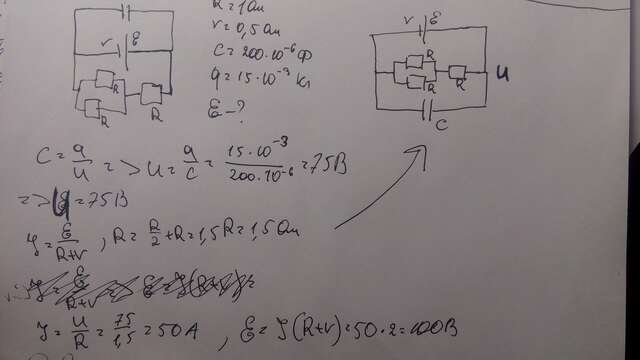 R=1Ом
r=0,5Ом
C=200·10⁻⁶Ф
q=15·10⁻³Кл
ℰ-?
r ℰ
R
R
R
r ℰ
R
R
R
U
C
C=q/U => U=q/C=15·10⁻³/200·10⁻⁶=75В
=> U=75В
I=ℰ/R+r, R=R/2+R=1,5R=1,5Ом
I=U/R=75/1,5=50А, ℰ=I(R+r)=50·2=100В